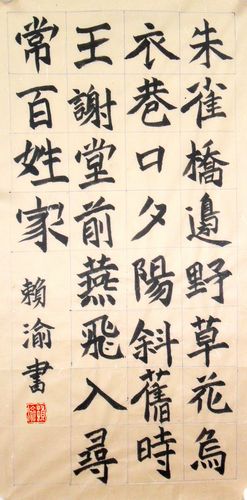 朱雀橋邊野草花烏
衣巷口夕陽斜舊時
王謝堂前燕飛入尋
常百姓家
賴渝書